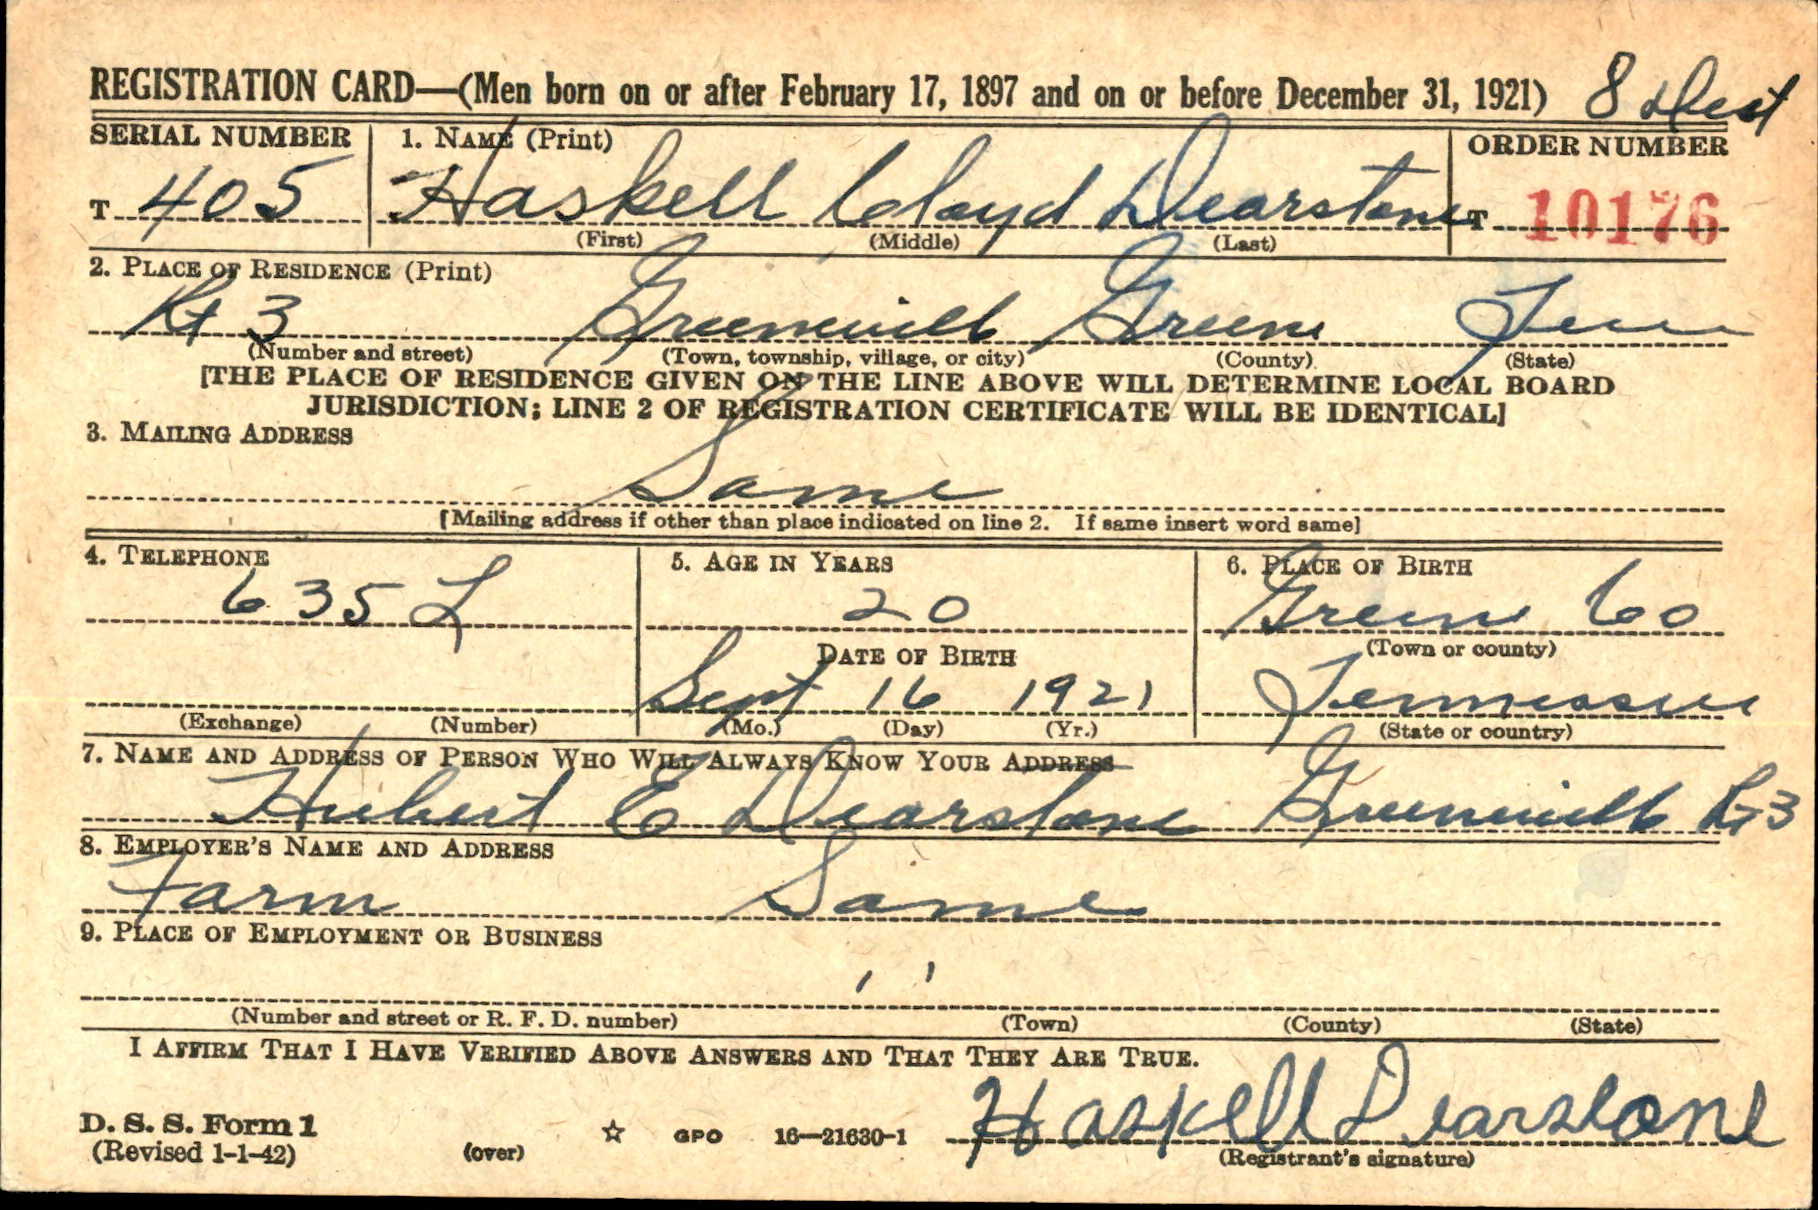 REGISTRATION CARD—(Men born on or after February 17, 1897 and on or before December 31, 1921) 8 Dist
SERIAL NUMBER 1. NAME (Print) ORDER NUMBER
T 405 Haskell Cloyd Dearstone T 10176
(First) (Middle) (Last)
2. PLACE OF RESIDENCE (Print)
Rt 3 Greeneville Greene Tenn
(Number and street) (Town, township, village, or city) (County) (State)
[THE PLACE OF RESIDENCE GIVEN ON THE LINE ABOVE WILL DETERMINE LOCAL BOARD
JURISDICTION; LINE 2 OF REGISTRATION CERTIFICATE WILL BE IDENTICAL]
3. MAILING ADDRESS
Same
[Mailing address if other than place indicated on line 2. If same insert word same]
4. TELEPHONE 5. AGE IN YEARS 6. PLACE OF BIRTH
635 L 20 Greene Co
DATE OF BIRTH (Town or county)
Sept 16 1921 Tennessee
(Exchange) (Number) (Mo.) (Day) (Yr.) (State or country)
7. NAME AND ADDRESS OF PERSON WHO WILL ALWAYS KNOW YOUR ADDRESS
Hubert E Dearstone Greeneville Rt 3
8. EMPLOYER'S NAME AND ADDRESS
Farm Same
9. PLACE OF EMPLOYMENT OR BUSINESS
' '
(Number and street or R. F. D. number) (Town) (County) (State)
I AFFIRM THAT I HAVE VERIFIED ABOVE ANSWERS AND THAT THEY ARE TRUE.
Haskell Dearstone
D. S. S. Form 1
(Revised 1-1-42) (over) ☆ GPO 16—21630-1 (Registrant's signature)